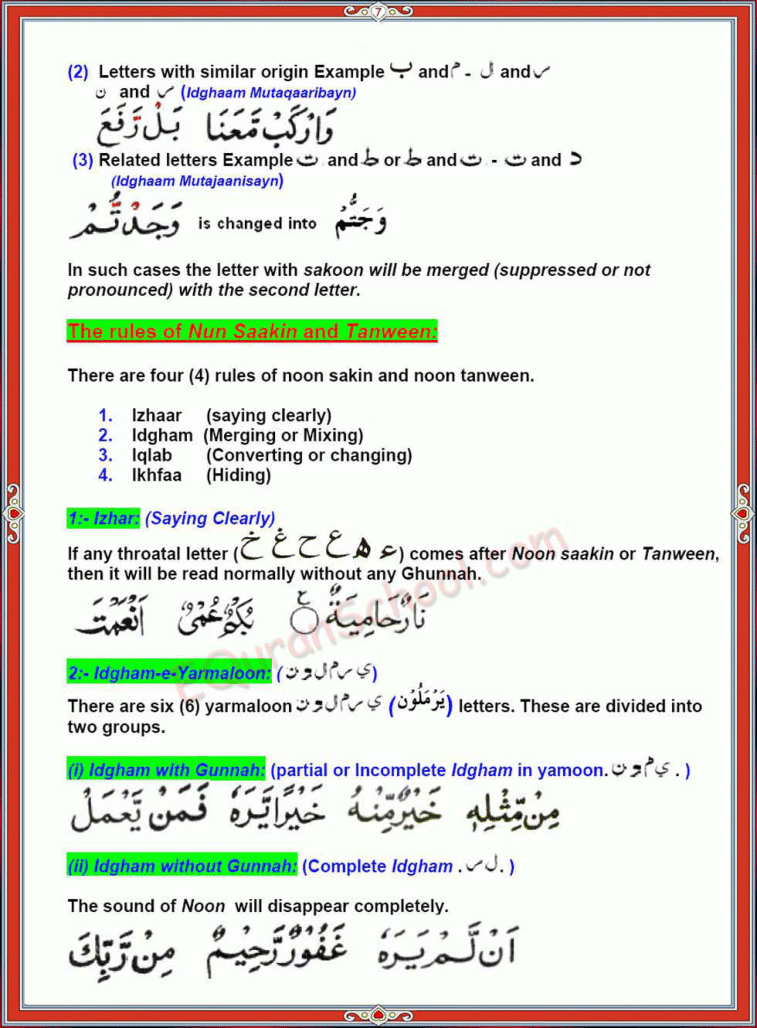 7
(2) Letters with similar origin Example ب and م - ل and س
ن and س (Idghaam Mutaqaaribayn)
وَارْكَبْ مَّعَنَا بَلْ رَّفَعَ
(3) Related letters Example ت and ط or ط and ت - ت and د
(Idghaam Mutajaanisayn)
وَجَدْتُّمْ is changed into وَجَتُّمْ
In such cases the letter with sakoon will be merged (suppressed or not
pronounced) with the second letter.
The rules of Nun Saakin and Tanween:
There are four (4) rules of noon sakin and noon tanween.
1. Izhaar (saying clearly)
2. Idgham (Merging or Mixing)
3. Iqlab (Converting or changing)
4. Ikhfaa (Hiding)
1:- Izhar: (Saying Clearly)
If any throatal letter (ء ه ع ح غ خ) comes after Noon saakin or Tanween,
then it will be read normally without any Ghunnah.
نَارٌ حَامِيَةٌ بُكْمٌ عُمْىٌ اَنْعَمْتَ
2:- Idgham-e-Yarmaloon: (ي ر م ل و ن)
There are six (6) yarmaloon ي ر م ل و ن (يَرْمَلُوْن) letters. These are divided into
two groups.
(i) Idgham with Gunnah: (partial or Incomplete Idgham in yamoon. ي م و ن . )
مِنْ مِّثْلِهٖ خَيْرٌ مِّنْهُ خَيْرًا يَّرَهٗ فَمَنْ يَّعْمَلْ
(ii) Idgham without Gunnah: (Complete Idgham . ل ر . )
The sound of Noon will disappear completely.
اَنْ لَّمْ يَرَهٗ غَفُوْرٌ رَّحِيْمٌ مِنْ رَّبِّكَ
EQuranSchool.com